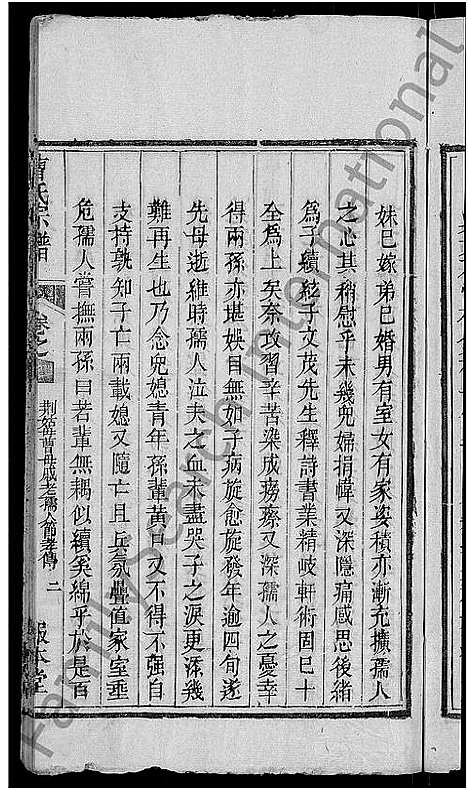 妹巳嫁弟巳婚男有室女有家姿積亦漸充擴孺人
之心其稍慰乎未幾兒婦捐幃又深隱痛感思後緒
爲子續絃子文茂先生釋詩書業精岐軒術固巳十
全爲上矣奈改習辛苦染成癆瘵又深孺人之憂幸
得兩孫亦堪娛目無如子病旋愈旋發年逾四旬遂
先母逝維時孺人泣夫之血未盡哭子之淚更添幾
難再生也乃念兒媳青年孫輩黃口又不得不强自
支持孰知子亡兩載媳又隨亡且兵氛疊值家室垂
危孺人嘗撫兩孫曰若輩無耦似續矣綿乎於是百
曹氏宗譜
卷之
荆笄曹母戚老孺人節孝傳 二
報本堂
FamilySearch International